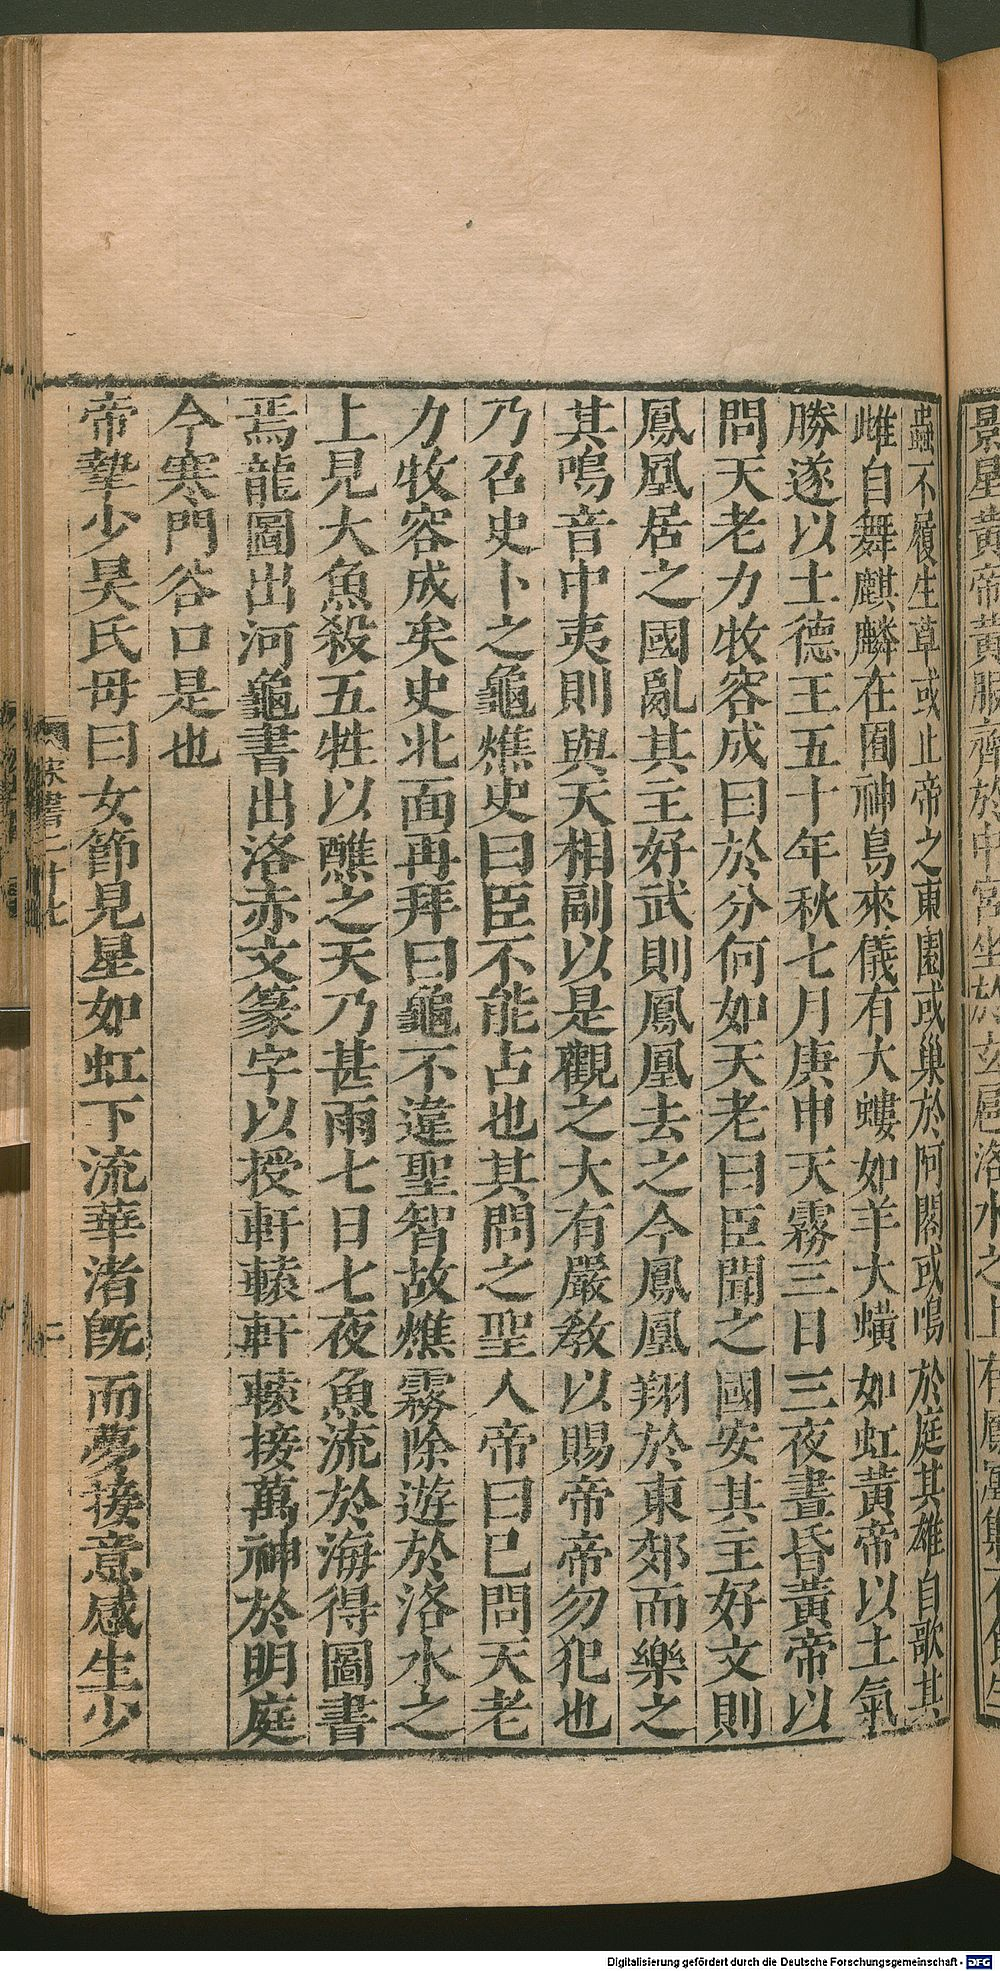 蟲不履生草或止帝之東園或巢於阿閣或鳴於庭其雄自歌其
雌自舞麒麟在囿神鳥來儀有大螻如羊大螾如虹黃帝以土氣
勝遂以土德王五十年秋七月庚申天霧三日三夜晝昏黃帝以
問天老力牧容成曰於分何如天老曰臣聞之國安其主好文則
鳳凰居之國亂其主好武則鳳凰去之今鳳凰翔於東郊而樂之
其鳴音中夷則與天相副以是觀之大有嚴敎以賜帝帝勿犯也
乃召史卜之龜燋史曰臣不能占也其問之聖人帝曰已問天老
力牧容成矣史北面再拜曰龜不違聖智故燋霧除遊於洛水之
上見大魚殺五牲以醮之天乃甚雨七日七夜魚流於海得圖書
焉龍圖出河龜書出洛赤文篆字以授軒轅軒轅接萬神於明庭
今寒門谷口是也
帝摯少昊氏母曰女節見星如虹下流華渚旣而夢接意感生少
宋書二十七
二
景星黃帝黃服齋於中宮坐於玄扈洛水之上有鳳凰集不食生
Digitalisierung gefördert durch die Deutsche Forschungsgemeinschaft - DFG